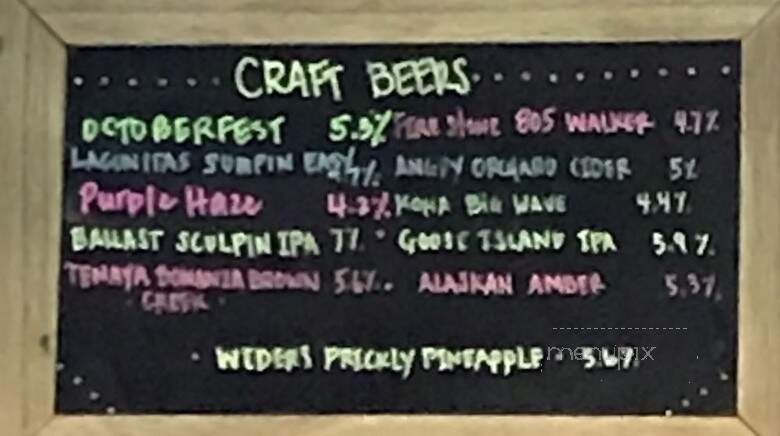 CRAFT BEERS
OCTOBERFEST 5.5% FIRE STONE 805 WALKER 4.7%
LAGUNITAS SUMPIN EASY % ANGRY ORCHARD CIDER 5%
Purple Haze 4.2% KONA BIG WAVE 4.4%
BALLAST SCULPIN IPA 7% GOOSE ISLAND IPA 5.9%
TENAYA BONANZA BROWN 5.6% ALASKAN AMBER 5.3%
CREEK
WIDERS PRICKLY PINEAPPLE 5.6%
menupix